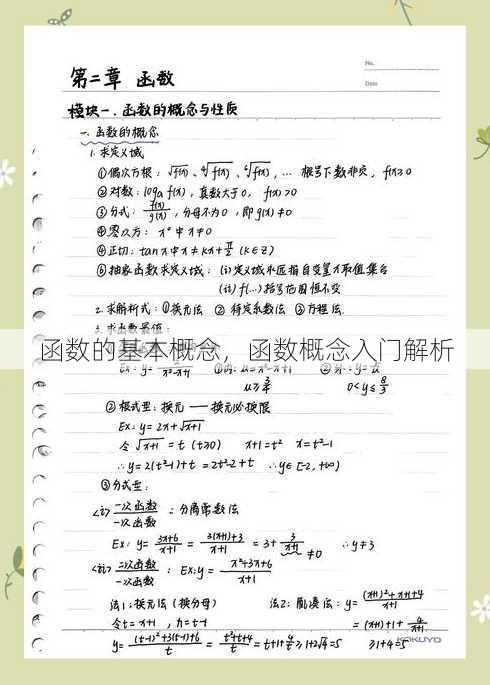 No.
Date
第二章 函数
模块一. 函数的概念与性质
一. 函数的概念
1. 求定义域
①偶次方根: √f(x)、⁴√f(x)、⁶√f(x), … 根号下数非负, f(x)≥0
②对数: logₐf(x), 真数大于0, f(x)>0
③分式: f(x)/g(x), 分母不为0, 即g(x)≠0
④零次方: x⁰中x≠0
⑤正切: tanx中x≠kπ+π/2 (k∈Z)
⑥抽象函数求定义域: (i)定义域永匹指自变量x取值集合
(ii) f(...)括号范围恒不变
2. 求解析式: ①换元法 ②待定系数法 ③方程法.
3. 求函数最值:
函数的基本概念，函数概念入门解析
②根式型: 换元 — 换元必换限
Ex: y=2x+√x+1
令√x+1=t (t≥0) x+1=t² x=t²-1
∴y=2(t²-1)+t=2t²-2+t ∴y∈[-2,+∞)
③分式型:
<i> 一次函数/一次函数 : 分离常数法
Ex: y=3x+6/x+1=3(x+1)+3/x+1=3+3/x+1≠0 ∴y≠3
<ii> 二次函数/一次函数 : Ex: y=x²+3x+6/x+1
法1: 换元法 (换分母) 法2: 配凑法: y=(x+1)²+x+1+4/x+1
令t=x+1, x=t-1 =(x+1)+1+4/x+1
y=(t-1)²+3(t-1)+6/t=t²+t+4/t=t+1+4/t≥1+2√4=5 ≥1+4=5
KOKUYO